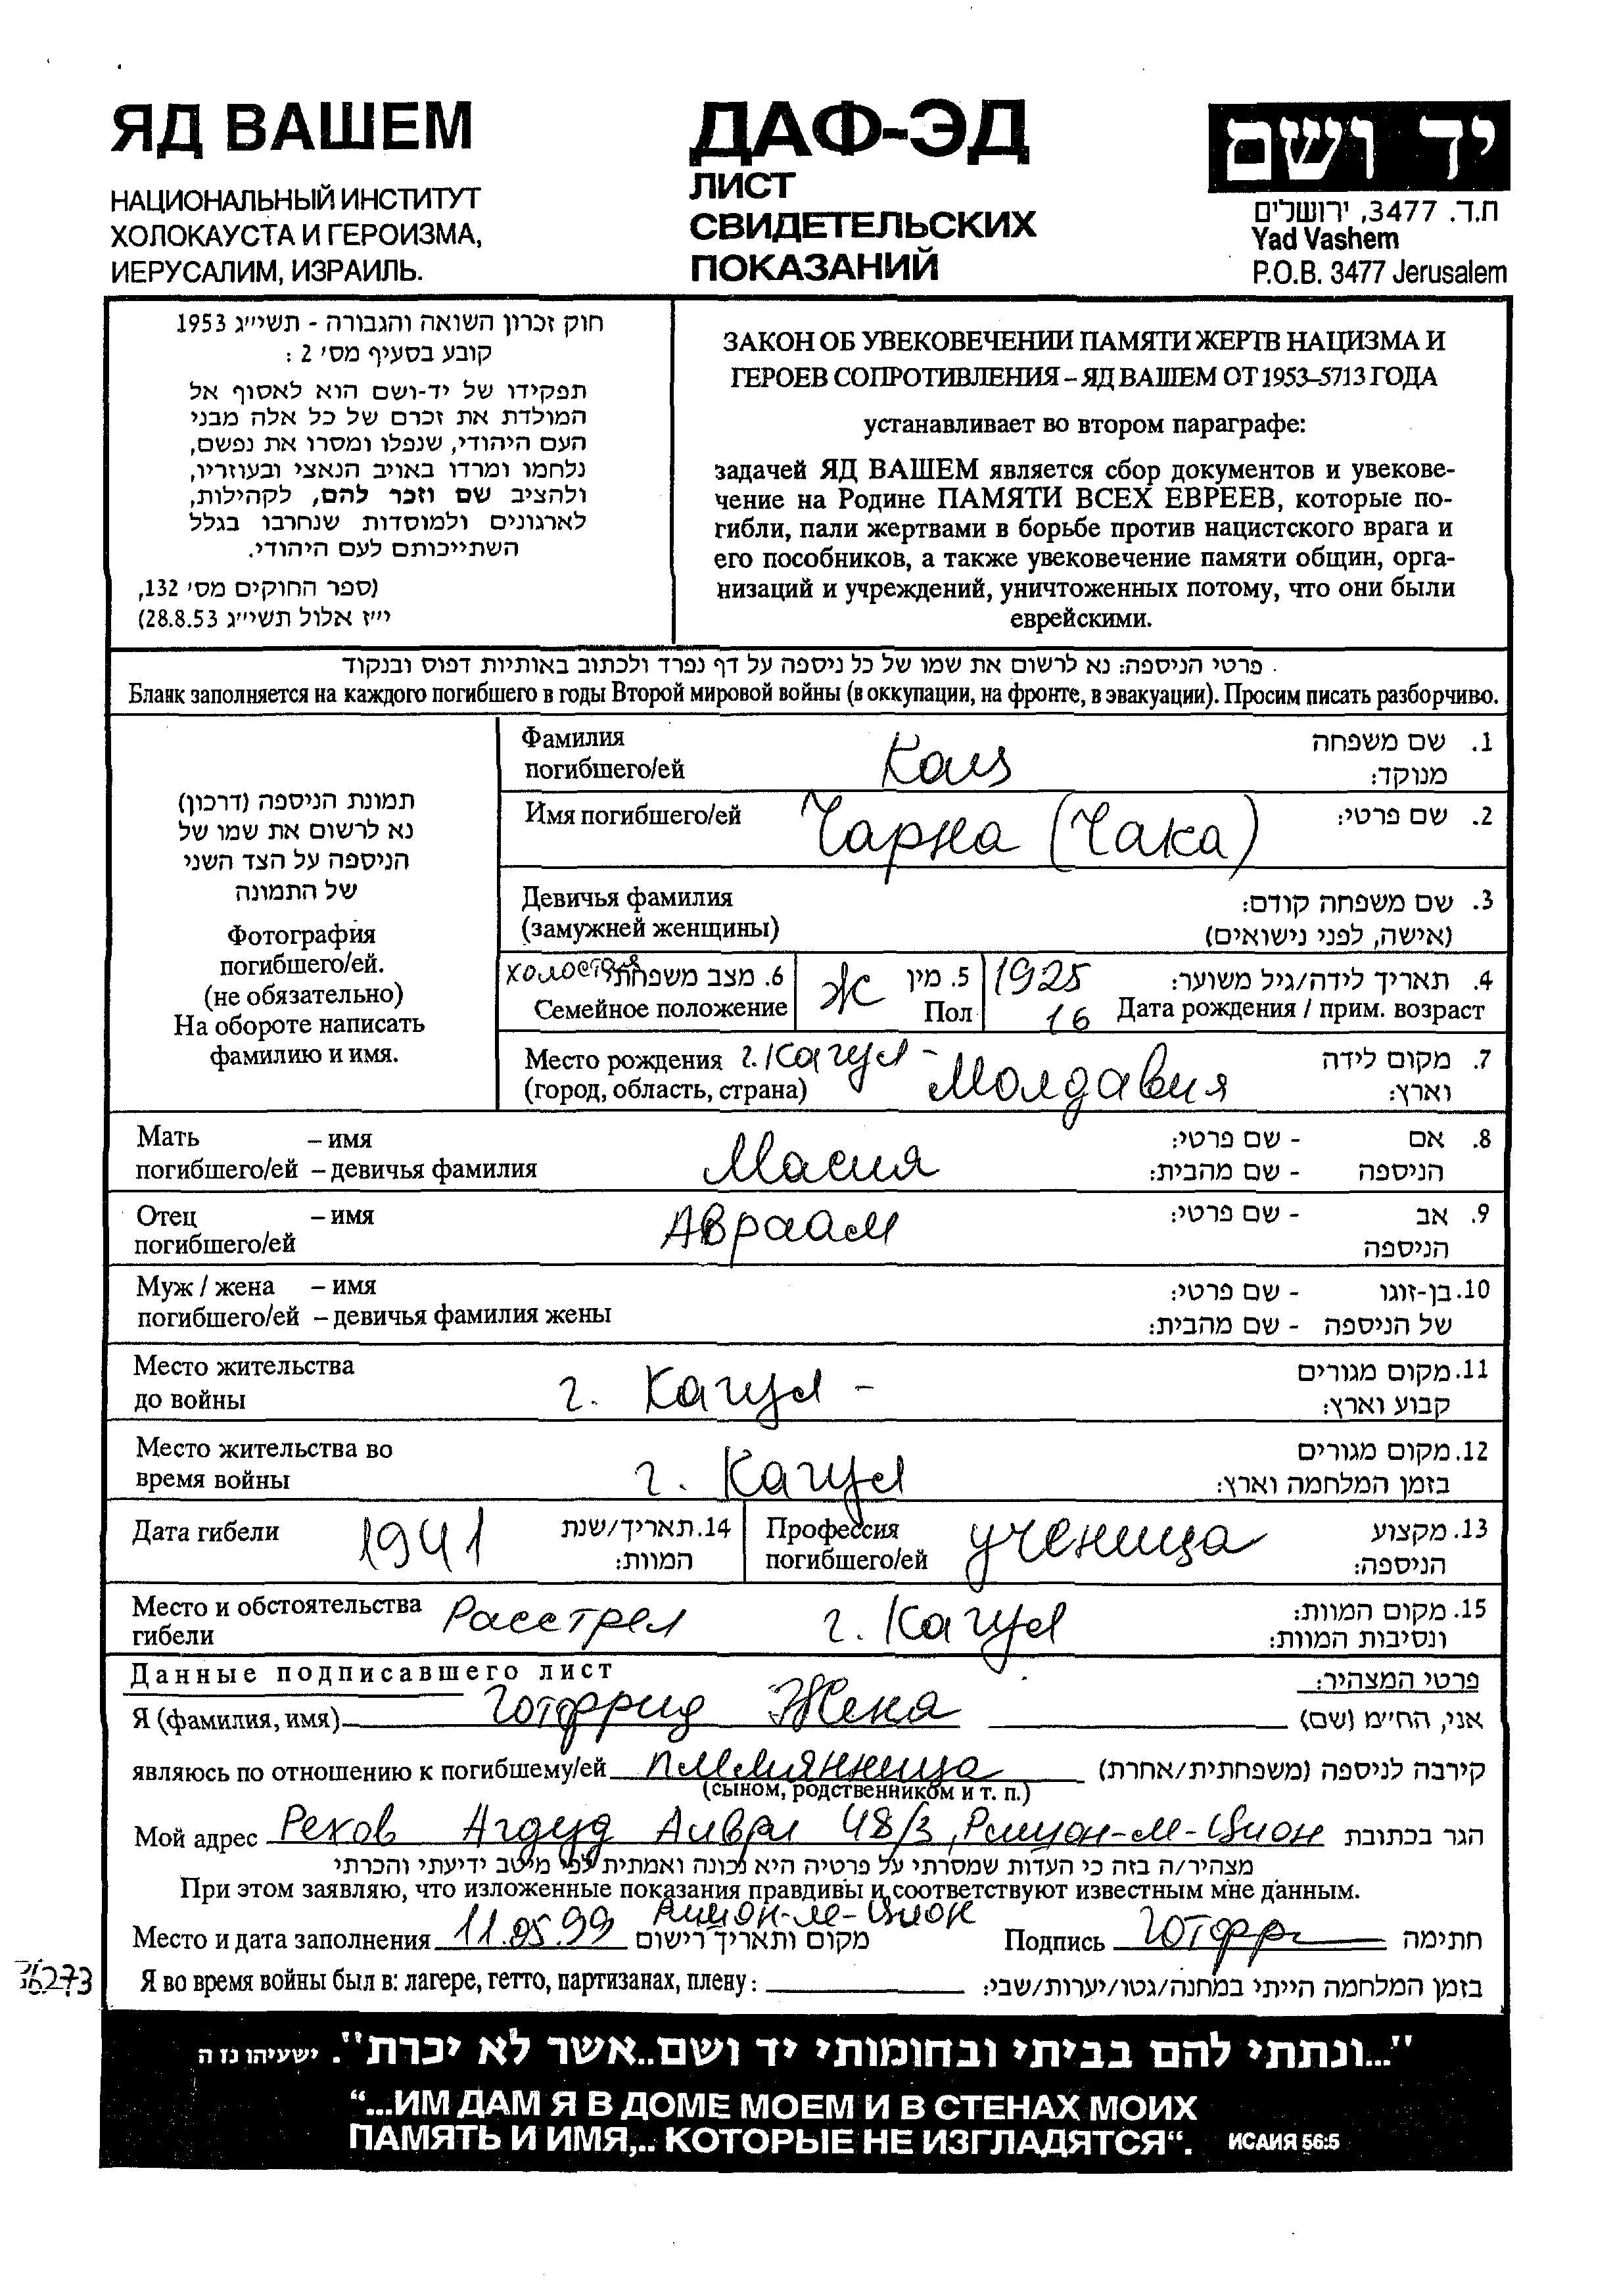 ЯД ВАШЕМ
НАЦИОНАЛЬНЫЙ ИНСТИТУТ
ХОЛОКАУСТА И ГЕРОИЗМА,
ИЕРУСАЛИМ, ИЗРАИЛЬ.
ДАФ-ЭД
ЛИСТ
СВИДЕТЕЛЬСКИХ
ПОКАЗАНИЙ
יד ושם
ת.ד. 3477, ירושלים
Yad Vashem
P.O.B. 3477 Jerusalem
חוק זכרון השואה והגבורה - תשי״ג 1953
קובע בסעיף מס׳ 2 :
תפקידו של יד-ושם הוא לאסוף אל
המולדת את זכרם של כל אלה מבני
העם היהודי, שנפלו ומסרו את נפשם,
נלחמו ומרדו באויב הנאצי ובעוזריו,
ולהציב שם וזכר להם, לקהילות,
לארגונים ולמוסדות שנחרבו בגלל
השתייכותם לעם היהודי.
(ספר החוקים מס׳ 132,
י״ז אלול תשי״ג 28.8.53)
ЗАКОН ОБ УВЕКОВЕЧЕНИИ ПАМЯТИ ЖЕРТВ НАЦИЗМА И
ГЕРОЕВ СОПРОТИВЛЕНИЯ – ЯД ВАШЕМ ОТ 1953-5713 ГОДА
устанавливает во втором параграфе:
задачей ЯД ВАШЕМ является сбор документов и увекове-
чение на Родине ПАМЯТИ ВСЕХ ЕВРЕЕВ, которые по-
гибли, пали жертвами в борьбе против нацистского врага и
его пособников, а также увековечение памяти общин, орга-
низаций и учреждений, уничтоженных потому, что они были
еврейскими.
פרטי הניספה: נא לרשום את שמו של כל ניספה על דף נפרד ולכתוב באותיות דפוס ובנקוד
Бланк заполняется на каждого погибшего в годы Второй мировой войны (в оккупации, на фронте, в эвакуации). Просим писать разборчиво.
תמונת הניספה (דרכון)
נא לרשום את שמו של
הניספה על הצד השני
של התמונה
Фотография
погибшего/ей.
(не обязательно)
На обороте написать
фамилию и имя.
Фамилия
погибшего/ей
Кац
1. שם משפחה
מנוקד:
Имя погибшего/ей Чарна (Чака) 2. שם פרטי:
Девичья фамилия
(замужней женщины)
3. שם משפחה קודם:
(אישה, לפני נישואים)
холостая 6. מצב משפחתי
Семейное положение
Ж 5. מין
Пол
1925 4. תאריך לידה/גיל משוער:
16 Дата рождения / прим. возраст
Место рождения г. Кагул - 7. מקום לידה
(город, область, страна) Молдавия וארץ:
Мать – имя
погибшего/ей – девичья фамилия
Масия
8. אם - שם פרטי:
הניספה - שם מהבית:
Отец – имя
погибшего/ей
Авраам
9. אב - שם פרטי:
הניספה
Муж / жена – имя
погибшего/ей – девичья фамилия жены
10. בן-זוגו - שם פרטי:
של הניספה - שם מהבית:
Место жительства
до войны
г. Кагул -
11. מקום מגורים
קבוע וארץ:
Место жительства во
время войны
г. Кагул
12. מקום מגורים
בזמן המלחמה וארץ:
Дата гибели 1941 14. תאריך/שנת
המוות:
Профессия
погибшего/ей
ученица
13. מקצוע
הניספה:
Место и обстоятельства
гибели
Расстрел г. Кагул
15. מקום המוות:
ונסיבות המוות:
Данные подписавшего лист פרטי המצהיר:
Я (фамилия, имя) Готфрид Жена אני, הח״מ (שם)
являюсь по отношению к погибшему/ей племянница קירבה לניספה (משפחתית/אחרת)
(сыном, родственником и т. п.)
Мой адрес Рехов Агдуд Аиври 48/3, Ришон-ле-Цион הגר בכתובת
מצהיר/ה בזה כי העדות שמסרתי על פרטיה היא נכונה ואמתית לפי מיטב ידיעתי והכרתי
При этом заявляю, что изложенные показания правдивы и соответствуют известным мне данным.
Ришон-ле-Цион
Место и дата заполнения 11.05.99 מקום ותאריך רישום Подпись חתימה
Я во время войны был в: лагере, гетто, партизанах, плену: בזמן המלחמה הייתי במחנה/גטו/יערות/שבי:
"...ונתתי להם בביתי ובחומותי יד ושם..אשר לא יכרת". ישעיהו נז ה
“...ИМ ДАМ Я В ДОМЕ МОЕМ И В СТЕНАХ МОИХ
ПАМЯТЬ И ИМЯ,.. КОТОРЫЕ НЕ ИЗГЛАДЯТСЯ“. ИСАИЯ 56:5